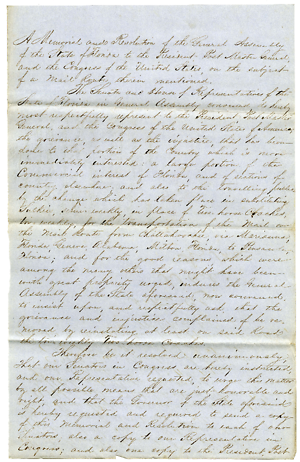 A Memorial and Resolution of the General Assembly
of the State of Florida to the President, Post Master General,
and the Congress of the United States, on the subject
of a Mail Route therein mentioned.
The Senate and House of Representatives of the
State of Florida in General Assembly convened,
most respectfully represent to the President, Post Master
General, and the Congress of the United States of America,
the grievance as well as the injustice, that has been
done to that portion of the County which is more
immediately interested, a large portion of the
Commercial interest of Florida, and of citizens of
county elsewhere, and also to the travelling public
by the change which has taken place in substituting
in place of two horse Coaches,
for the transportation of the Mail on
the Mail Route from Marianna,
Florida, Geneva Alabama, Milton Florida, to Pensacola
Florida; and for the good reasons which were
among the many others that might have been
with great propriety urged, induces the General
Assembly of the State aforesaid, now
to insist upon, and respectfully ask that the
grievance and injustice complained of be re-
moved by reinstating at least on said Route,
two horse Coaches.
Therefore be it resolved unanimously
that our Senators in Congress are hereby instructed,
and our Representative requested, to urge this matter
by all possible means that are just honorable and
right, and that the Governor of the State aforesaid,
is hereby requested and required to send a copy
of this Memorial and Resolution to each of our
Senators, also a copy to our Representative in
Congress; and also one copy to the President, Post